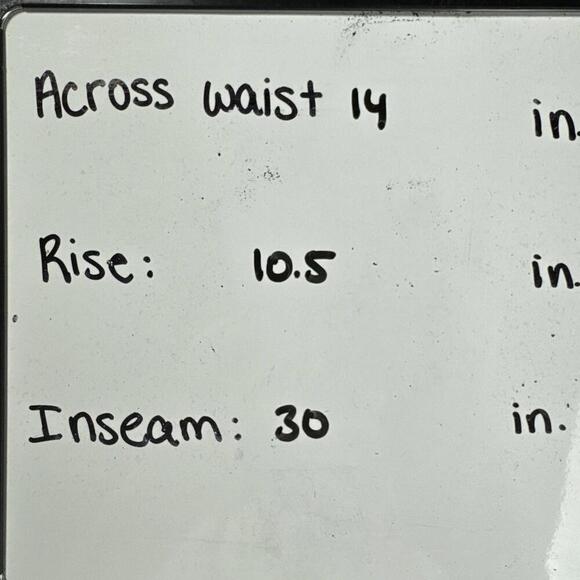 Across waist 14 in.
Rise: 10.5 in.
Inseam: 30 in.